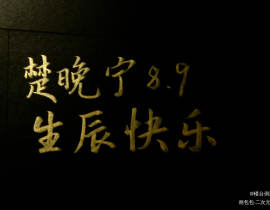 楚晚宁8.9
生辰快乐